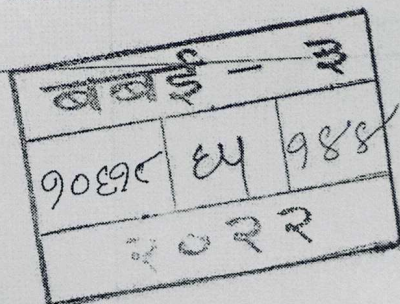 बबई - ३
१०६१८ ६५ १४४
२०२२